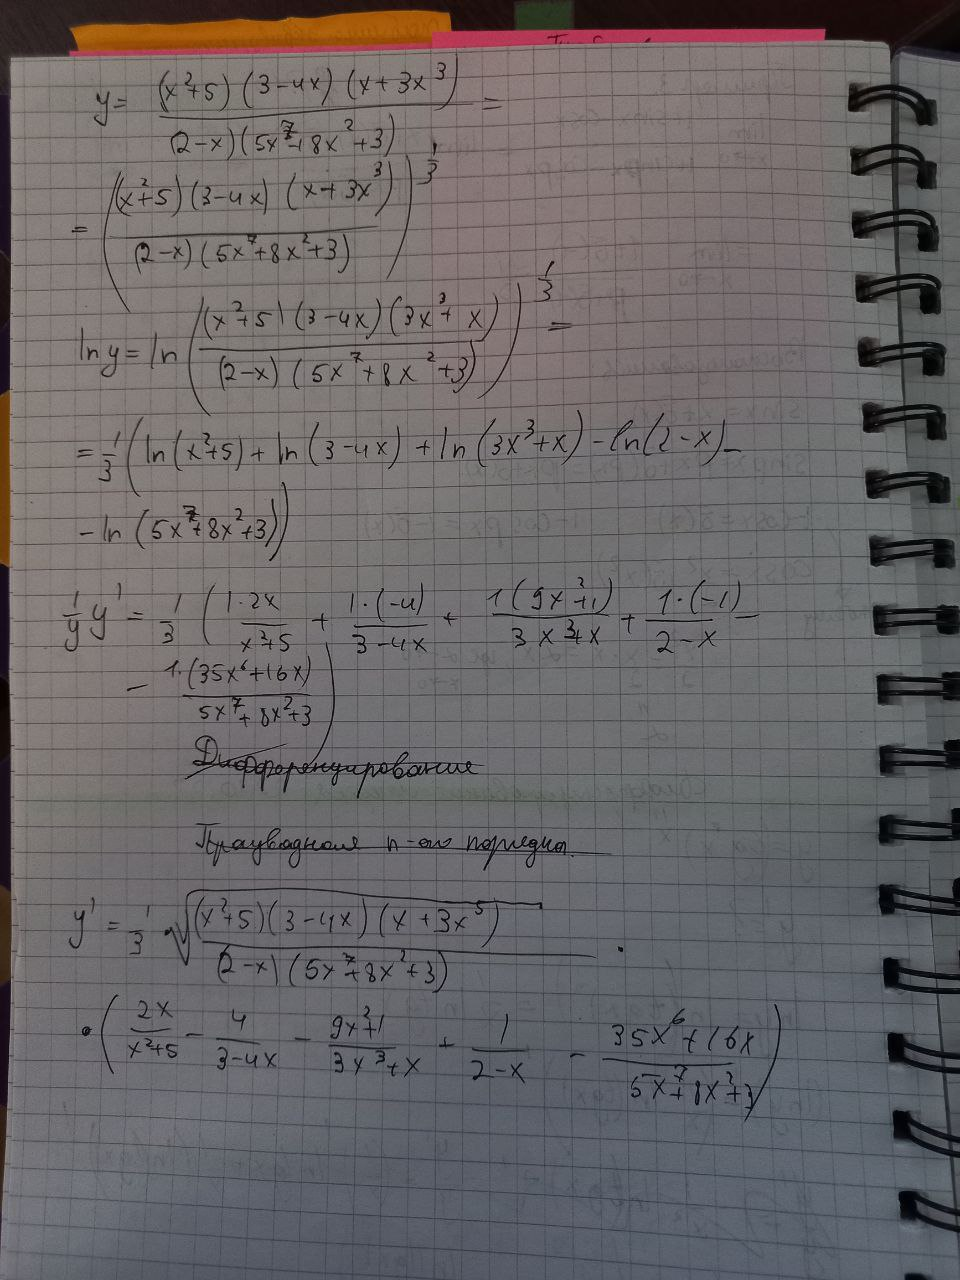 y = ((x²+5)(3-4x)(x+3x³)) / ((2-x)(5x⁷+8x²+3)) =
= (((x²+5)(3-4x)(x+3x³)) / ((2-x)(5x⁷+8x²+3)))^(1/3)
ln y = ln (((x²+5)(3-4x)(3x³+x)) / ((2-x)(5x⁷+8x²+3)))^(1/3) =
= 1/3 (ln(x²+5) + ln(3-4x) + ln(3x³+x) - ln(2-x) -
- ln(5x⁷+8x²+3))
1/y y' = 1/3 ((1·2x)/(x²+5) + (1·(-4))/(3-4x) + (1(9x²+1))/(3x³+x) + (1·(-1))/(2-x) -
- (1·(35x⁶+16x))/(5x⁷+8x²+3))
Дифференцирование
Производная n-ого порядка.
y' = 1/3 · √(((x²+5)(3-4x)(x+3x⁵)) / ((2-x)(5x⁷+8x²+3))) ·
· (2x/(x²+5) - 4/(3-4x) - (9x²+1)/(3x³+x) + 1/(2-x) - (35x⁶+16x)/(5x⁷+8x²+3))